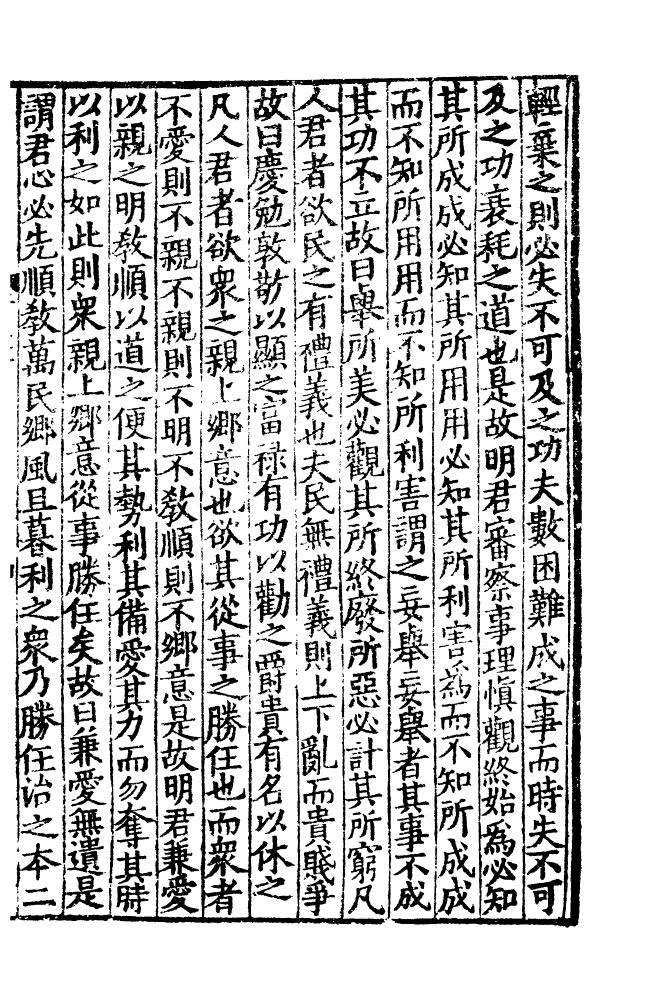 輕棄之則必失不可及之功夫數困難成之事而時失不可
及之功衰耗之道也是故明君審察事理慎觀終始為必知
其所成成必知其所用用必知其所利害為而不知所成成
而不知所用用而不知所利害謂之妄舉妄舉者其事不成
其功不立故曰舉所美必觀其所終廢所惡必計其所窮凡
人君者欲民之有禮義也夫民無禮義則上下亂而貴賤爭
故曰慶勉敦敬以顯之富禄有功以勸之爵貴有名以休之
凡人君者欲衆之親上鄉意也欲其從事之勝任也而衆者
不愛則不親不親則不明不教順則不鄉意是故明君兼愛
以親之明教順以道之便其勢利其備愛其力而勿奪其時
以利之如此則衆親上鄉意從事勝任矣故曰兼愛無遺是
謂君心必先順教萬民鄉風旦暮利之衆乃勝任治之本二